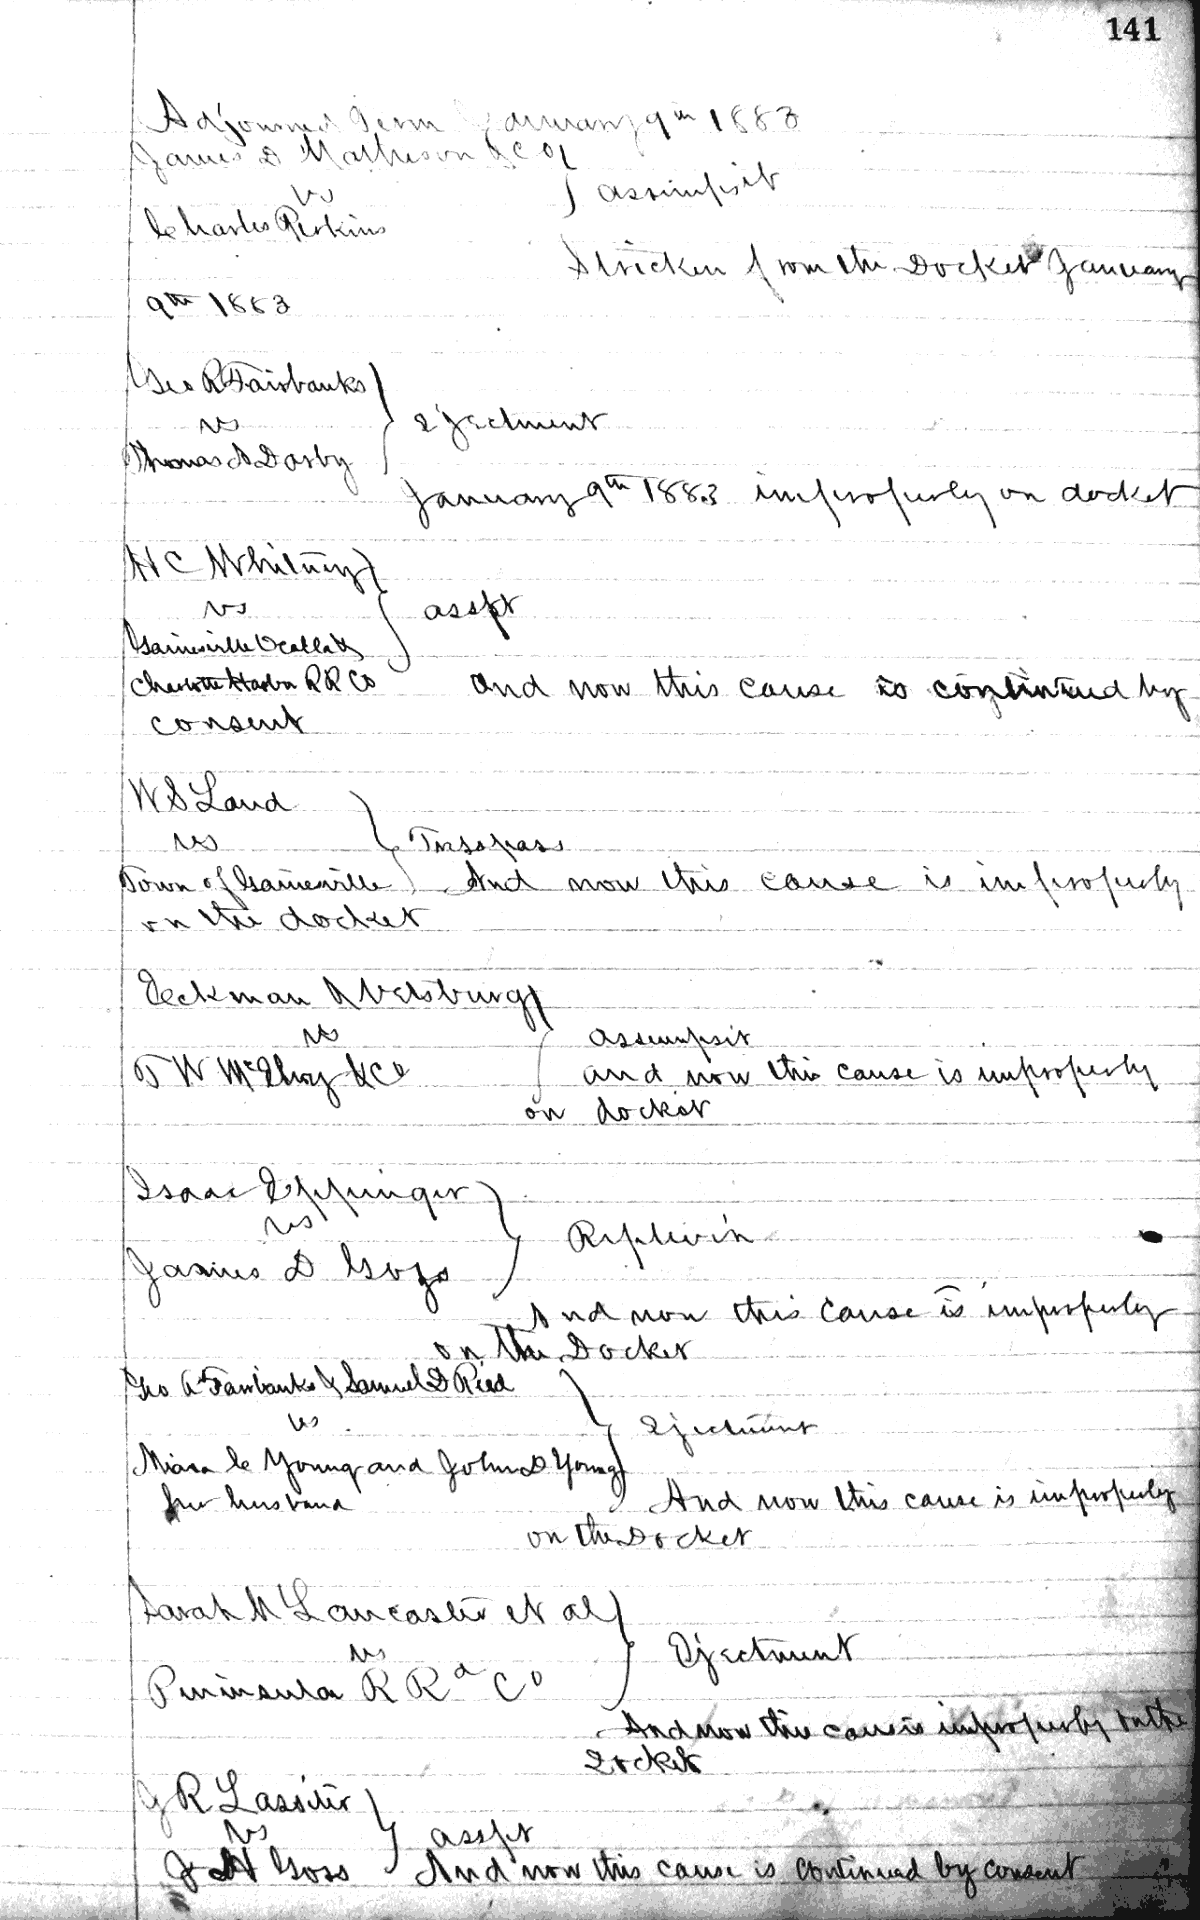 141
Adjourned Term January 9th 1883
James D Matheson & Co
vs } assumpsit
Charles Perkins
Stricken from the Docket January
9th 1883
Geo R Fairbanks
vs } Ejectment
Thomas A Darby
January 9th 1883 improperly on docket
H C Whitney
vs } asspt
Gainesville Ocalla &
Charlotte Harbor R R Co And now this cause is continued by
consent
W S Land
vs } Trespass
Town of Gainesville And now this cause is improperly
on the docket
Eckman & Vetsburg
vs assumpsit
T W McElroy & Co and now this cause is improperly
on docket
Isaac Eppinger
vs } Replevin
James D Goss
And now this cause is improperly
on the Docket
Geo R Fairbanks & Samuel D Reed
vs } Ejectment
C Young and John D Young
her husband And now this cause is improperly
on the Docket
Sarah Lancaster et al
vs } Ejectment
Peninsula R Rd Co
And now this cause is improperly on the
Docket
J R Lassiter
vs } asspt
J Goss And now this cause is continued by consent